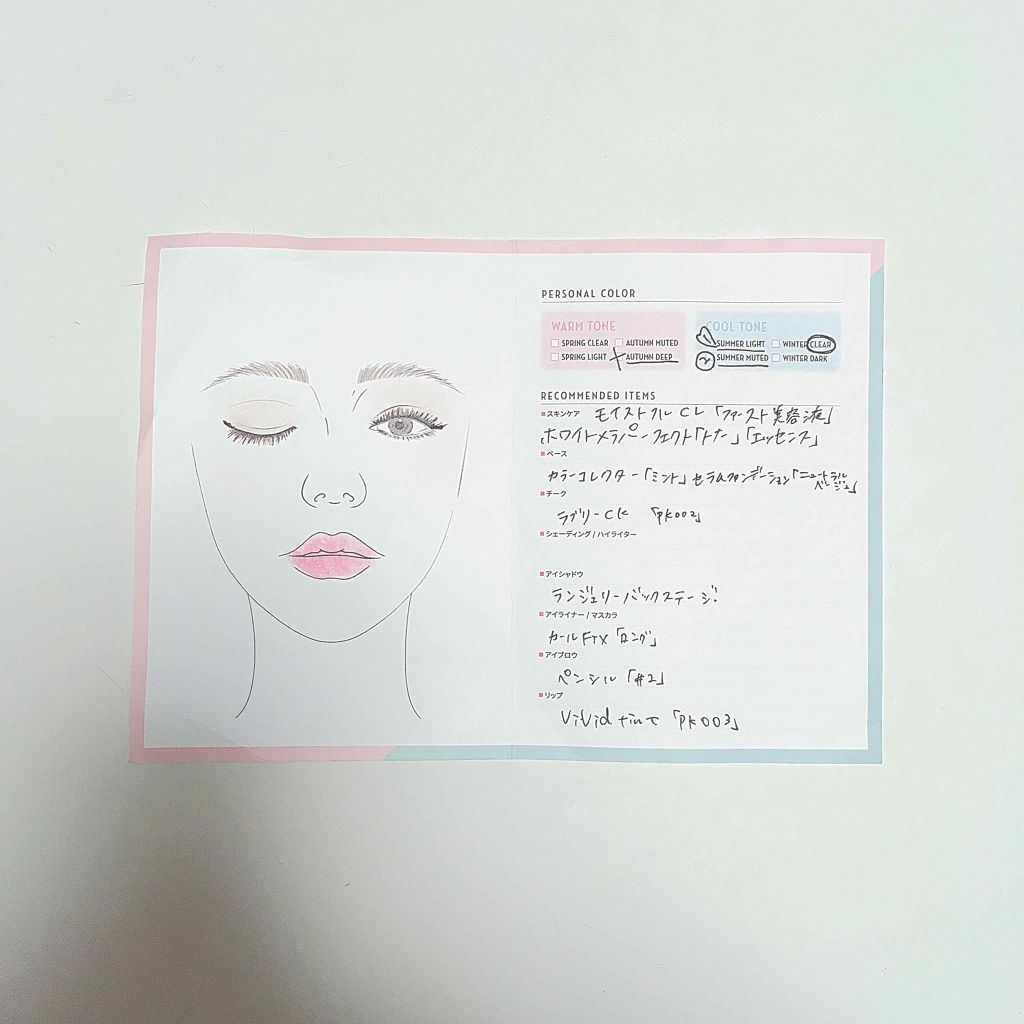 PERSONAL COLOR
WARM TONE
SPRING CLEAR AUTUMN MUTED
SPRING LIGHT AUTUMN DEEP
COOL TONE
SUMMER LIGHT WINTER CLEAR
② SUMMER MUTED WINTER DARK
RECOMMENDED ITEMS
スキンケア モイストフル CL「ファースト美容液」
ホワイトメラパーフェクト「トナー」「エッセンス」
ベース
カラーコレクター「ミント」セラムファンデーション「ニュートラルベージュ」
チーク
ラブリーCK 「PK002」
シェーディング / ハイライター
アイシャドウ
ランジェリーバックステージ
アイライナー / マスカラ
カールFIX「ロング」
アイブロウ
ペンシル「#2」
リップ
Vivid tint 「PK003」